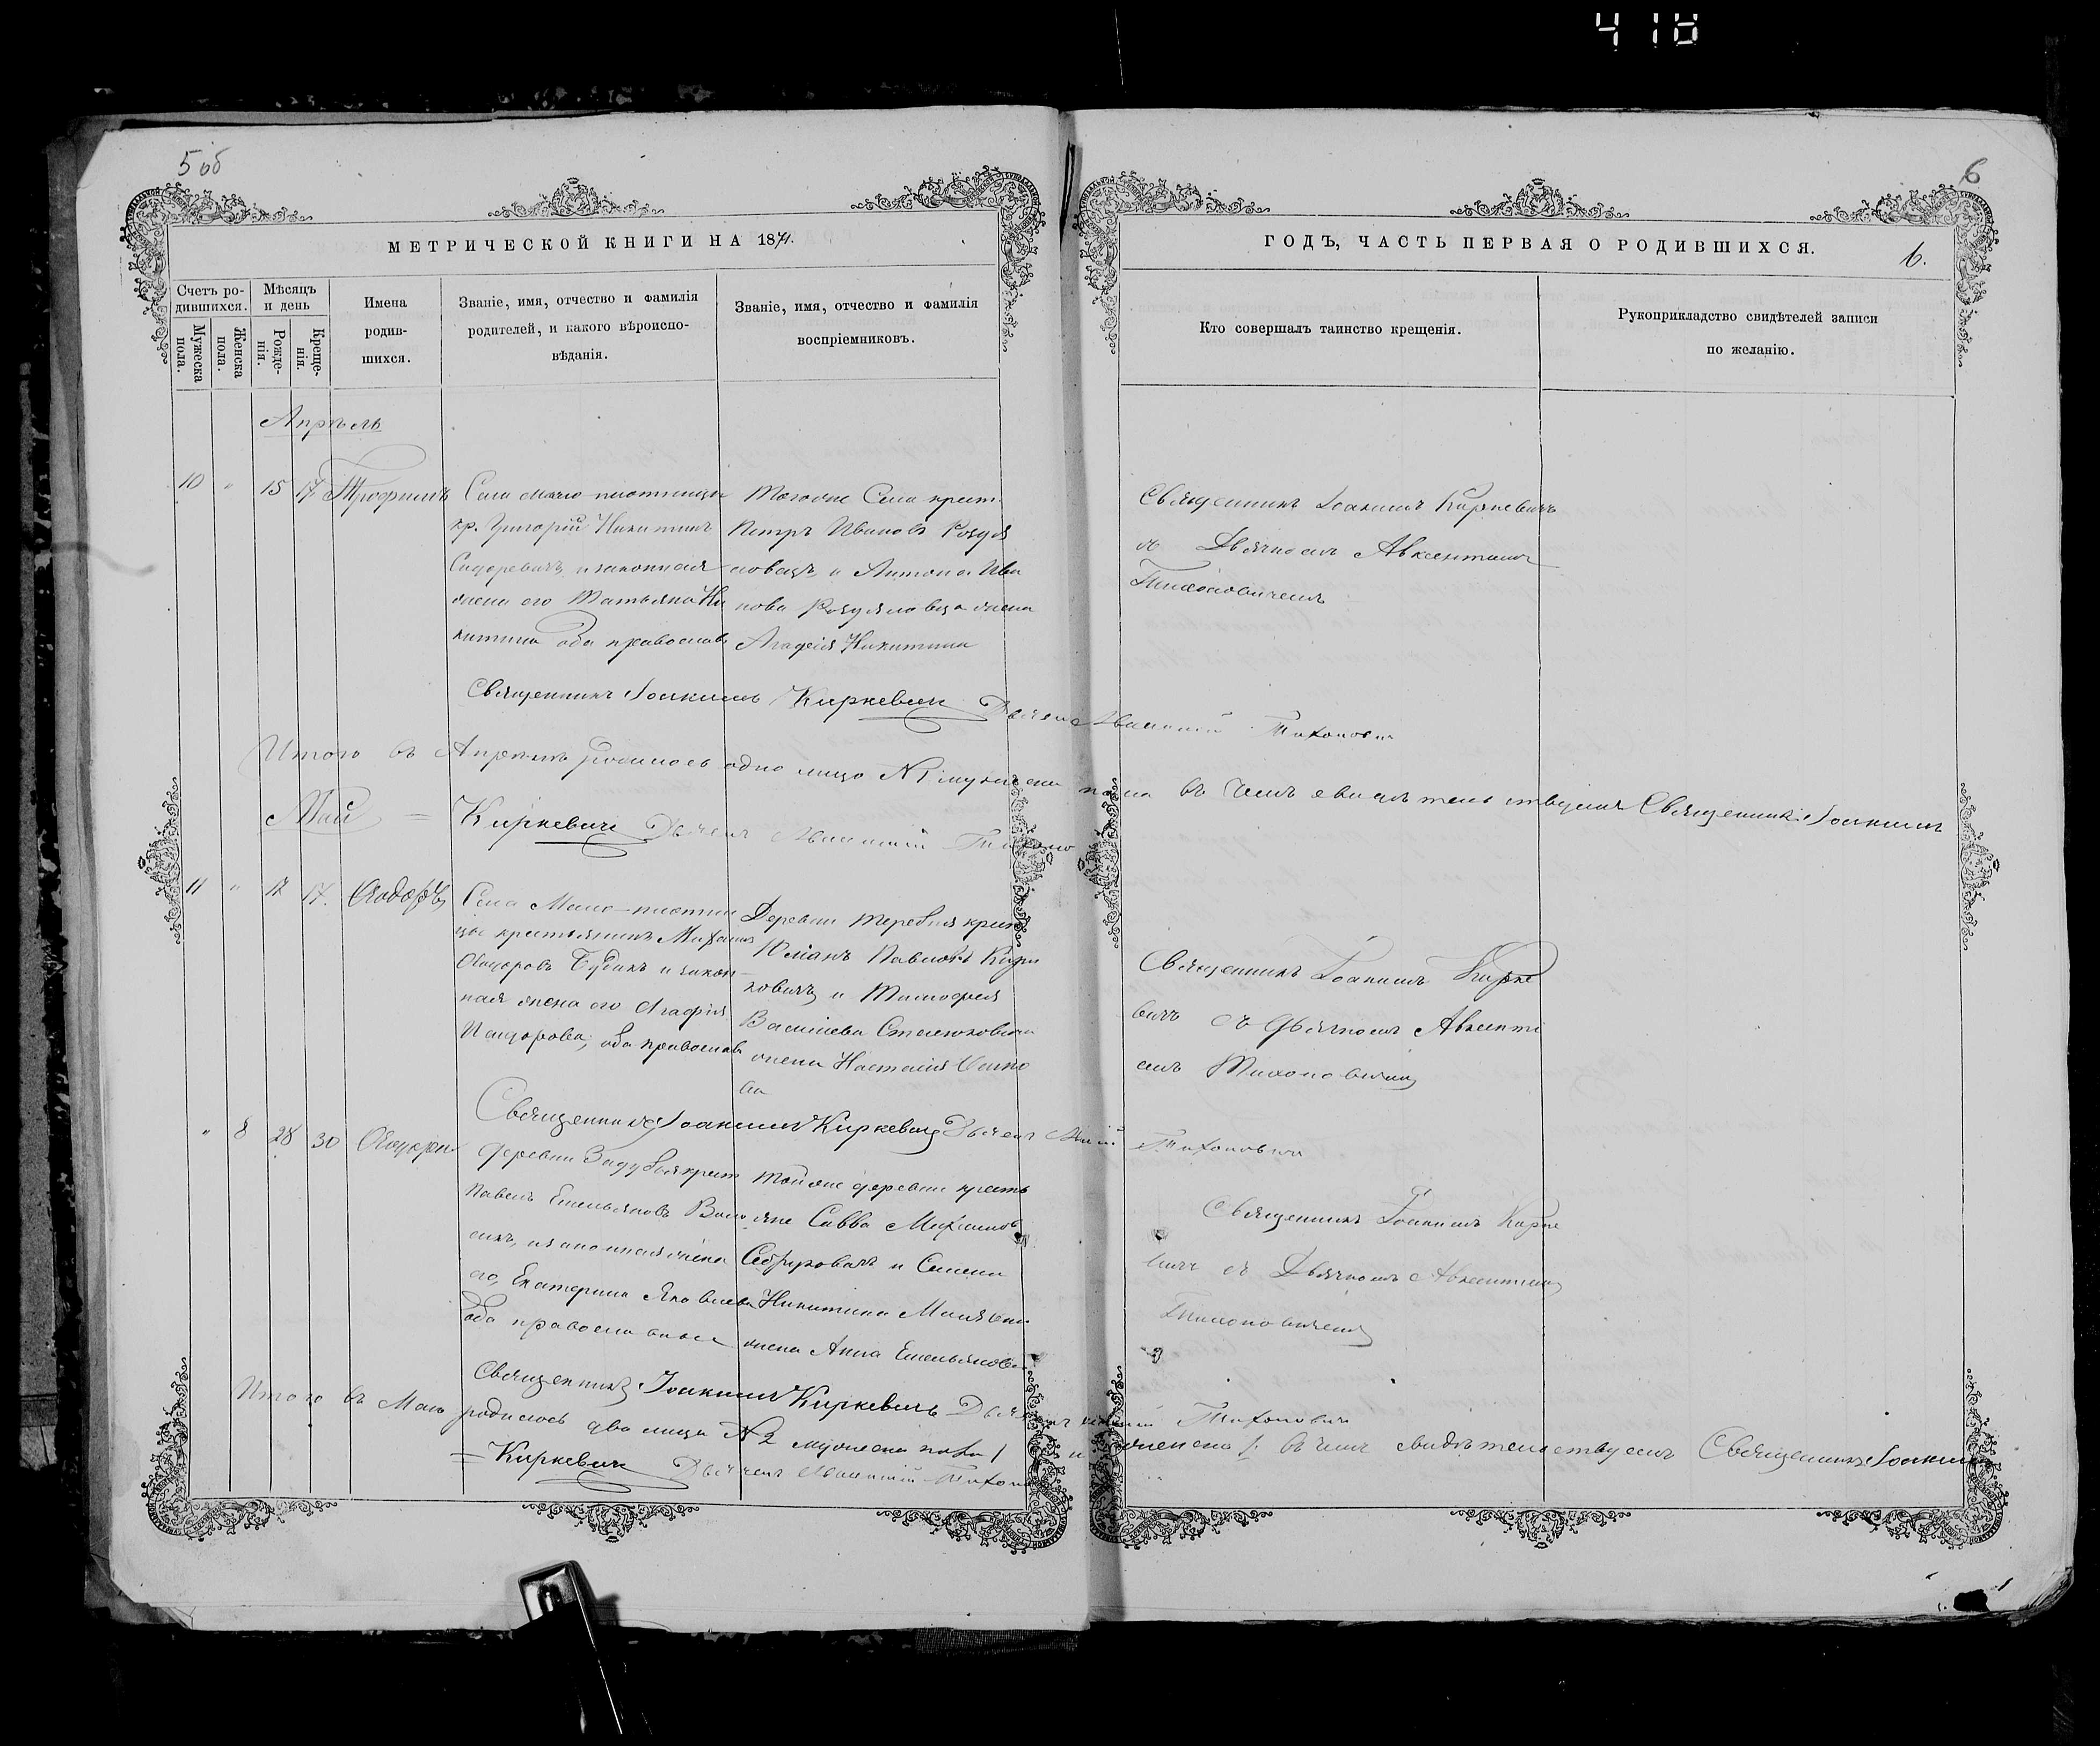 418
5 об
6
МЕТРИЧЕСКОЙ КНИГИ НА 1871.
ГОДЪ, ЧАСТЬ ПЕРВАЯ О РОДИВШИХСЯ.
6.
Счетъ ро-
дившихся.
Мужеска
пола.
Женска
пола.
Мѣсяцъ
и день
Рожде-
нія.
Креще-
нія.
Имена
родив-
шихся.
Званіе, имя, отчество и фамилія
родителей, и какого вѣроиспо-
вѣданія.
Званіе, имя, отчество и фамилія
воспріемниковъ.
Кто совершалъ таинство крещенія.
Рукоприкладство свидѣтелей записи
по желанію.
Апрѣль
10 " 15 17 Трофимъ
Села Мало-плотницы
кр. Григорій Никитинъ
Сидоревичъ и законная
жена его Татьяна Ни
китина оба православ
Тогоже Села крест.
Петръ Ивановъ Роздя
ловецъ и Антона Ива
нова Роздяловца жена
Агафія Никитина
Священникъ Іоакимъ Киркевичъ
съ Дьячкомъ Авксентіемъ
Тихоновичемъ
Священникъ Іоакимъ Киркевичъ Дьячекъ Тихонович
Итого въ Апрѣлѣ родилось одно лицо № 1 мужеска пола въ чемъ свидѣтельствуемъ Священникъ Іоакимъ
Май = Киркевичъ Дьячекъ
11 " 12 17. Ѳеодоръ
Села Мало-плотни
цы крестьянинъ Михаилъ
Ѳеодоровъ Будникъ и закон
ная жена его Агафія
оба православ
Деревни Теребня крест
Юліанъ Павловъ Кири
ковичъ и Тимофея
Васильева
жена Настасія
ва
Священникъ Іоакимъ Кирке
вичъ съ Дьячкомъ Авксенті
емъ Тихоновичемъ
Священникъ Іоакимъ Киркевичъ Дьячекъ Тихоновичъ
" 8 28 30 Ѳеодора
Деревни крест
Павелъ Емельяновъ
и законная жена
его, Екатерина Яковлева
оба православные
Той же деревни кресть
яне Савва Михайловъ
и Семена
Никитина
жена Анна Емельянова
Священникъ Іоакимъ Кирке
вичъ съ Дьячкомъ Авксентіемъ
Тихоновичемъ
Священникъ Іоакимъ Киркевичъ Тихоновичъ
Итого въ Маѣ родилось два лица № 2 мужеска пола 1 и женска 1. въ чемъ свидѣтельствуемъ Священникъ Іоакимъ
= Киркевичъ Дьячекъ